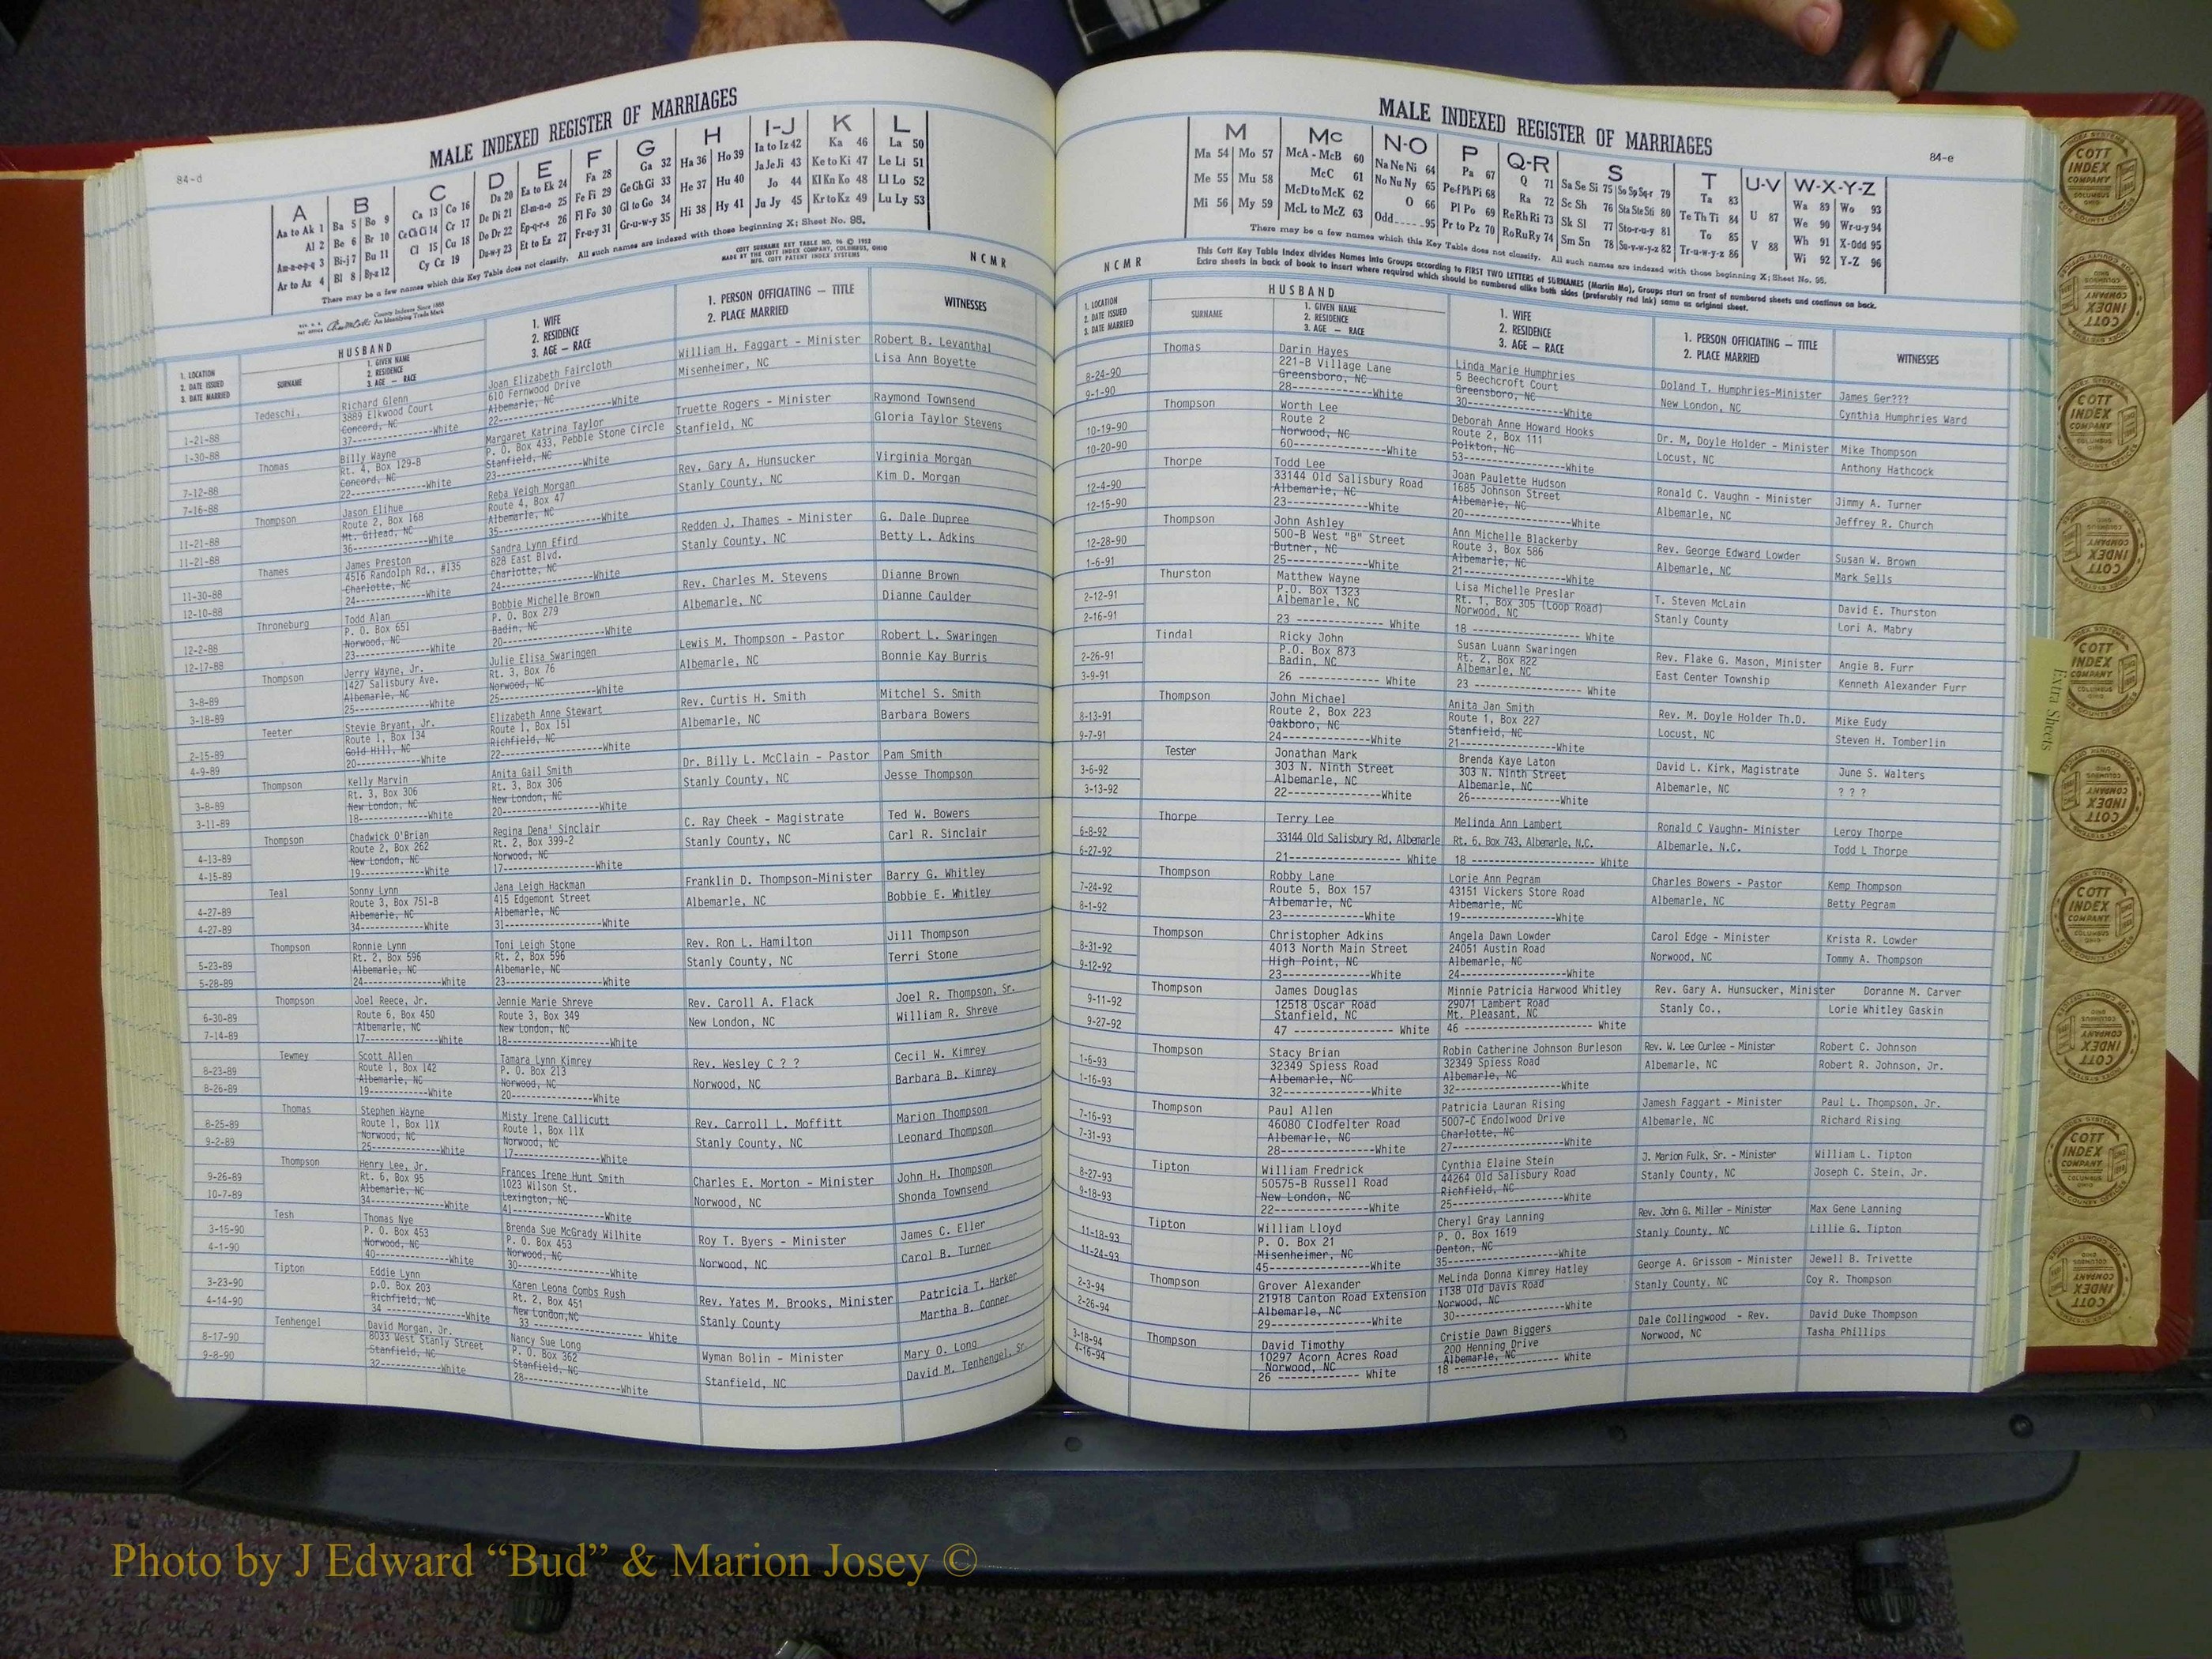 84-d
MALE INDEXED REGISTER OF MARRIAGES
A
Aa to Ak 1
Al 2
Am-n-o-p-q 3
Ar to Az 4
B
Ba 5 Bo 9
Be 6 Br 10
Bi-j 7 Bu 11
Bl 8 By-z 12
C
Ca 13 Co 16
Ce Ch Ci 14 Cr 17
Cl 15 Cu 18
Cy Cz 19
D
Da 20
De Di 21
Do Dr 22
Du-w-y 23
E
Ea to Ek 24
El-m-n-o 25
Ep-q-r-s 26
Et to Ez 27
F
Fa 28
Fe Fi 29
Fl Fo 30
Fr-u-y 31
G
Ga 32
Ge Gh Gi 33
Gl to Go 34
Gr-u-w-y 35
H
Ha 36 Ho 39
He 37 Hu 40
Hi 38 Hy 41
I-J
Ia to Iz 42
Ja Je Ji 43
Jo 44
Ju Jy 45
K
Ka 46
Ke to Ki 47
Kl Kn Ko 48
Kr to Kz 49
L
La 50
Le Li 51
Ll Lo 52
Lu Ly 53
There may be a few names which this Key Table does not classify. All such names are indexed with those beginning X; Sheet No. 95.
County Indexes Since 1888
An Identifying Trade Mark
COTT SURNAME KEY TABLE NO. 96 © 1952
MADE BY THE COTT INDEX COMPANY, COLUMBUS, OHIO
MFG. COTT PATENT INDEX SYSTEMS
NCMR
1. LOCATION
2. DATE ISSUED
3. DATE MARRIED
HUSBAND
SURNAME
1. GIVEN NAME
2. RESIDENCE
3. AGE — RACE
1. WIFE
2. RESIDENCE
3. AGE — RACE
1. PERSON OFFICIATING — TITLE
2. PLACE MARRIED
WITNESSES
1-21-88
1-30-88
Tedeschi,
Richard Glenn
3889 Elkwood Court
Concord, NC
37-----------White
Joan Elizabeth Faircloth
610 Fernwood Drive
Albemarle, NC
22----------------White
William H. Faggart - Minister
Misenheimer, NC
Robert B. Levanthal
Lisa Ann Boyette
7-12-88
7-16-88
Thomas
Billy Wayne
Rt. 4, Box 129-B
Concord, NC
22-----------White
Margaret Katrina Taylor
P. O. Box 433, Pebble Stone Circle
Stanfield, NC
23----------------White
Truette Rogers - Minister
Stanfield, NC
Raymond Townsend
Gloria Taylor Stevens
11-21-88
11-21-88
Thompson
Jason Elihue
Route 2, Box 168
Mt. Gilead, NC
36-----------White
Reba Veigh Morgan
Route 4, Box 47
Albemarle, NC
35----------------White
Rev. Gary A. Hunsucker
Stanly County, NC
Virginia Morgan
Kim D. Morgan
11-30-88
12-10-88
Thames
James Preston
4516 Randolph Rd., #135
Charlotte, NC
24-----------White
Sandra Lynn Efird
828 East Blvd.
Charlotte, NC
24----------------White
Redden J. Thames - Minister
Stanly County, NC
G. Dale Dupree
Betty L. Adkins
12-2-88
12-17-88
Throneburg
Todd Alan
P. O. Box 651
Norwood, NC
23-----------White
Bobbie Michelle Brown
P. O. Box 279
Badin, NC
20----------------White
Rev. Charles M. Stevens
Albemarle, NC
Dianne Brown
Dianne Caulder
3-8-89
3-18-89
Thompson
Jerry Wayne, Jr.
1427 Salisbury Ave.
Albemarle, NC
25-----------White
Julie Elisa Swaringen
Rt. 3, Box 76
Norwood, NC
25----------------White
Lewis M. Thompson - Pastor
Albemarle, NC
Robert L. Swaringen
Bonnie Kay Burris
2-15-89
4-9-89
Teeter
Stevie Bryant, Jr.
Route 1, Box 134
Gold Hill, NC
20-----------White
Elizabeth Anne Stewart
Route 1, Box 151
Richfield, NC
22----------------White
Rev. Curtis H. Smith
Albemarle, NC
Mitchel S. Smith
Barbara Bowers
3-8-89
3-11-89
Thompson
Kelly Marvin
Rt. 3, Box 306
New London, NC
18-----------White
Anita Gail Smith
Rt. 3, Box 306
New London, NC
20----------------White
Dr. Billy L. McClain - Pastor
Stanly County, NC
Pam Smith
Jesse Thompson
4-13-89
4-15-89
Thompson
Chadwick O'Brian
Route 2, Box 262
New London, NC
19-----------White
Regina Dena' Sinclair
Rt. 2, Box 399-2
Norwood, NC
17----------------White
C. Ray Cheek - Magistrate
Stanly County, NC
Ted W. Bowers
Carl R. Sinclair
4-27-89
4-27-89
Teal
Sonny Lynn
Route 3, Box 751-B
Albemarle, NC
34-----------White
Jana Leigh Hackman
415 Edgemont Street
Albemarle, NC
31----------------White
Franklin D. Thompson-Minister
Albemarle, NC
Barry G. Whitley
Bobbie E. Whitley
5-23-89
5-28-89
Thompson
Ronnie Lynn
Rt. 2, Box 596
Albemarle, NC
24-----------White
Toni Leigh Stone
Rt. 2, Box 596
Albemarle, NC
23----------------White
Rev. Ron L. Hamilton
Stanly County, NC
Jill Thompson
Terri Stone
6-30-89
7-14-89
Thompson
Joel Reece, Jr.
Route 6, Box 450
Albemarle, NC
17-----------White
Jennie Marie Shreve
Route 3, Box 349
New London, NC
18----------------White
Rev. Caroll A. Flack
New London, NC
Joel R. Thompson, Sr.
William R. Shreve
8-23-89
8-26-89
Tewmey
Scott Allen
Route 1, Box 142
Albemarle, NC
19-----------White
Tamara Lynn Kimrey
P. O. Box 213
Norwood, NC
20----------------White
Rev. Wesley C ? ?
Norwood, NC
Cecil W. Kimrey
Barbara B. Kimrey
8-25-89
9-2-89
Thomas
Stephen Wayne
Route 1, Box 11X
Norwood, NC
25-----------White
Misty Irene Callicutt
Route 1, Box 11X
Norwood, NC
17----------------White
Rev. Carroll L. Moffitt
Stanly County, NC
Marion Thompson
Leonard Thompson
9-26-89
10-7-89
Thompson
Henry Lee, Jr.
Rt. 6, Box 95
Albemarle, NC
34-----------White
Frances Irene Hunt Smith
1023 Wilson St.
Lexington, NC
41----------------White
Charles E. Morton - Minister
Norwood, NC
John H. Thompson
Shonda Townsend
3-15-90
4-1-90
Tesh
Thomas Nye
P. O. Box 453
Norwood, NC
40-----------White
Brenda Sue McGrady Wilhite
P. O. Box 453
Norwood, NC
30----------------White
Roy T. Byers - Minister
Norwood, NC
James C. Eller
Carol B. Turner
3-23-90
4-14-90
Tipton
Eddie Lynn
p.O. Box 203
Richfield, NC
34 -------------White
Karen Leona Combs Rush
Rt. 2, Box 451
New London,NC
33 ----------------- White
Rev. Yates M. Brooks, Minister
Stanly County
Patricia T. Harker
Martha B. Conner
8-17-90
9-8-90
Tenhengel
David Morgan, Jr.
8033 West Stanly Street
Stanfield, NC
32-----------White
Nancy Sue Long
P. O. Box 362
Stanfield, NC
28----------------White
Wyman Bolin - Minister
Stanfield, NC
Mary O. Long
David M. Tenhengel, Sr.
84-e
MALE INDEXED REGISTER OF MARRIAGES
M
Ma 54 Mo 57
Me 55 Mu 58
Mi 56 My 59
Mc
McA - McB 60
McC 61
McD to McK 62
McL to McZ 63
N-O
Na Ne Ni 64
No Nu Ny 65
O 66
Odd 95
P
Pa 67
Pe-f Ph Pi 68
Pl Po 69
Pr to Pz 70
Q-R
Q 71
Ra 72
Re Rh Ri 73
Ro Ru Ry 74
S
Sa Se Si 75 So Sp Sq-r 79
Sc Sh 76 Sta Ste Sti 80
Sk Sl 77 Sto-r-u-y 81
Sm Sn 78 Su-v-w-y-z 82
T
Ta 83
Te Th Ti 84
To 85
Tr-u-w-y-z 86
U-V
U 87
V 88
W-X-Y-Z
Wa 89 Wo 93
We 90 Wr-u-y 94
Wh 91 X-Odd 95
Wi 92 Y-Z 96
There may be a few names which this Key Table does not classify. All such names are indexed with those beginning X; Sheet No. 95.
This Cott Key Table Index divides Names into Groups according to FIRST TWO LETTERS of SURNAMES (Martin Ma), Groups start on front of numbered sheets and continue on back.
Extra sheets in back of book to insert where required which should be numbered alike both sides (preferably red ink) same as original sheet.
NCMR
1. LOCATION
2. DATE ISSUED
3. DATE MARRIED
HUSBAND
SURNAME
1. GIVEN NAME
2. RESIDENCE
3. AGE — RACE
1. WIFE
2. RESIDENCE
3. AGE — RACE
1. PERSON OFFICIATING — TITLE
2. PLACE MARRIED
WITNESSES
8-24-90
9-1-90
Thomas
Darin Hayes
221-B Village Lane
Greensboro, NC
28------------White
Linda Marie Humphries
5 Beechcroft Court
Greensboro, NC
30---------------White
Doland T. Humphries-Minister
New London, NC
James Ger???
Cynthia Humphries Ward
10-19-90
10-20-90
Thompson
Worth Lee
Route 2
Norwood, NC
60------------White
Deborah Anne Howard Hooks
Route 2, Box 111
Polkton, NC
53---------------White
Dr. M, Doyle Holder - Minister
Locust, NC
Mike Thompson
Anthony Hathcock
12-4-90
12-15-90
Thorpe
Todd Lee
33144 Old Salisbury Road
Albemarle, NC
23------------White
Joan Paulette Hudson
1685 Johnson Street
Albemarle, NC
20---------------White
Ronald C. Vaughn - Minister
Albemarle, NC
Jimmy A. Turner
Jeffrey R. Church
12-28-90
1-6-91
Thompson
John Ashley
500-B West "B" Street
Butner, NC
25------------White
Ann Michelle Blackerby
Route 3, Box 586
Albemarle, NC
21---------------White
Rev. George Edward Lowder
Albemarle, NC
Susan W. Brown
Mark Sells
2-12-91
2-16-91
Thurston
Matthew Wayne
P.O. Box 1323
Albemarle, NC
23 ------------ White
Lisa Michelle Preslar
Rt. 1, Box 305 (Loop Road)
Norwood, NC
18 ---------------- White
T. Steven McLain
Stanly County
David E. Thurston
Lori A. Mabry
2-26-91
3-9-91
Tindal
Ricky John
P.O. Box 873
Badin, NC
26 ------------ White
Susan Luann Swaringen
Rt. 2, Box 822
Albemarle, NC
23 ---------------- White
Rev. Flake G. Mason, Minister
East Center Township
Angie B. Furr
Kenneth Alexander Furr
8-13-91
9-7-91
Thompson
John Michael
Route 2, Box 223
Oakboro, NC
24------------White
Anita Jan Smith
Route 1, Box 227
Stanfield, NC
21---------------White
Rev. M. Doyle Holder Th.D.
Locust, NC
Mike Eudy
Steven H. Tomberlin
3-6-92
3-13-92
Tester
Jonathan Mark
303 N. Ninth Street
Albemarle, NC
22------------White
Brenda Kaye Laton
303 N. Ninth Street
Albemarle, NC
26---------------White
David L. Kirk, Magistrate
Albemarle, NC
June S. Walters
? ? ?
6-8-92
6-27-92
Thorpe
Terry Lee
33144 Old Salisbury Rd, Albemarle
21---------------- White
Melinda Ann Lambert
Rt. 6, Box 743, Albemarle, N.C.
18 ------------------ White
Ronald C Vaughn- Minister
Albemarle, N.C.
Leroy Thorpe
Todd L Thorpe
7-24-92
8-1-92
Thompson
Robby Lane
Route 5, Box 157
Albemarle, NC
23------------White
Lorie Ann Pegram
43151 Vickers Store Road
Albemarle, NC
19---------------White
Charles Bowers - Pastor
Albemarle, NC
Kemp Thompson
Betty Pegram
8-31-92
9-12-92
Thompson
Christopher Adkins
4013 North Main Street
High Point, NC
23------------White
Angela Dawn Lowder
24051 Austin Road
Albemarle, NC
24---------------White
Carol Edge - Minister
Norwood, NC
Krista R. Lowder
Tommy A. Thompson
9-11-92
9-27-92
Thompson
James Douglas
12518 Oscar Road
Stanfield, NC
47 ---------------- White
Minnie Patricia Harwood Whitley
29071 Lambert Road
Mt. Pleasant, NC
46 ------------------ White
Rev. Gary A. Hunsucker, Minister
Stanly Co.,
Doranne M. Carver
Lorie Whitley Gaskin
1-6-93
1-16-93
Thompson
Stacy Brian
32349 Spiess Road
Albemarle, NC
32------------White
Robin Catherine Johnson Burleson
32349 Spiess Road
Albemarle, NC
32---------------White
Rev. W. Lee Curlee - Minister
Albemarle, NC
Robert C. Johnson
Robert R. Johnson, Jr.
7-16-93
7-31-93
Thompson
Paul Allen
46080 Clodfelter Road
Albemarle, NC
28------------White
Patricia Lauran Rising
5007-C Endolwood Drive
Charlotte, NC
27---------------White
Jamesh Faggart - Minister
Albemarle, NC
Paul L. Thompson, Jr.
Richard Rising
8-27-93
9-18-93
Tipton
William Fredrick
50575-B Russell Road
New London, NC
22------------White
Cynthia Elaine Stein
44264 Old Salisbury Road
Richfield, NC
25---------------White
J. Marion Fulk, Sr. - Minister
Stanly County, NC
William L. Tipton
Joseph C. Stein, Jr.
11-18-93
11-24-93
Tipton
William Lloyd
P. O. Box 21
Misenheimer, NC
45------------White
Cheryl Gray Lanning
P. O. Box 1619
Denton, NC
35---------------White
Rev. John G. Miller - Minister
Stanly County, NC
Max Gene Lanning
Lillie G. Tipton
2-3-94
2-26-94
Thompson
Grover Alexander
21918 Canton Road Extension
Albemarle, NC
29------------White
MeLinda Donna Kimrey Hatley
i138 Old Davis Road
Norwood, NC
30---------------White
George A. Grissom - Minister
Stanly County, NC
Jewell B. Trivette
Coy R. Thompson
3-18-94
4-16-94
Thompson
David Timothy
10297 Acorn Acres Road
Norwood, NC
26 ------------ White
Cristie Dawn Biggers
200 Henning Drive
Albemarle, NC
18 ---------------- White
Dale Collingwood - Rev.
Norwood, NC
David Duke Thompson
Tasha Phillips
Extra Sheets
COTT
INDEX
COMPANY
COLUMBUS
OHIO
INDEX SYSTEMS
FOR COUNTY OFFICES
Photo by J Edward “Bud” & Marion Josey ©